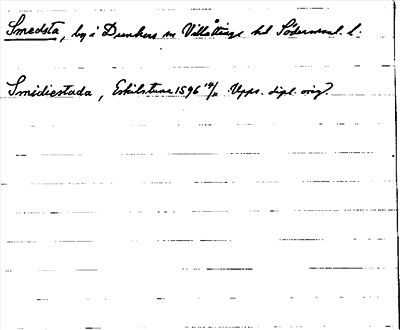 Smedsta, by i Dunkers sn Villåttinge hd Södermanl. l.
Smidiestada, Eskilstuna 1596 Upps. dipl. orig.